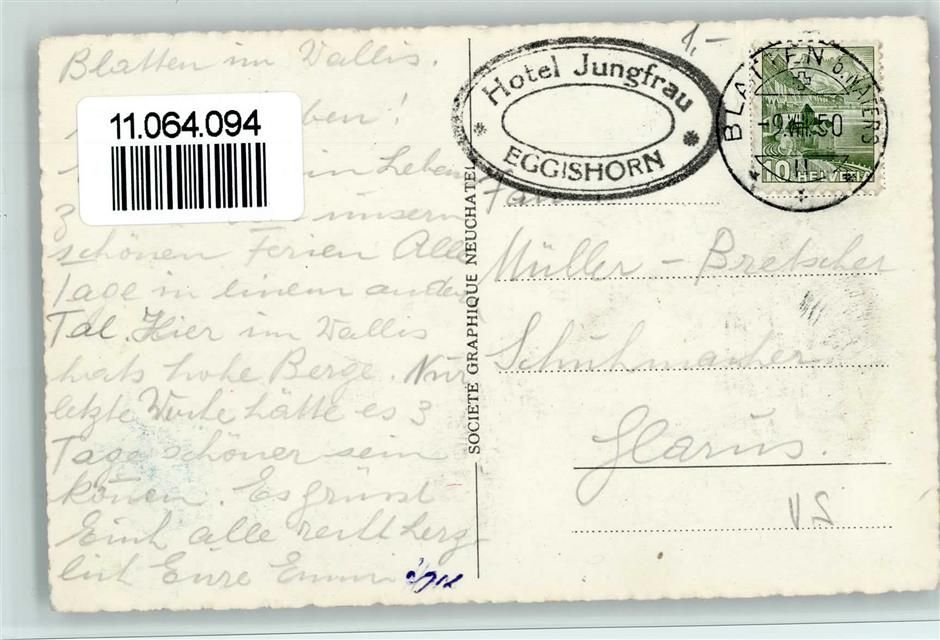 Blatten im Wallis.
11.064.094
ben!
in Leben
unsern
schönen Ferien Alle
Tage in einem andern
Tal. Hier im Wallis
hats hohe Berge. Nur
letzte Woche hätte es 3
Tage schöner sein
können. Es grüsst
Euch alle recht herz-
lich Eure Emmi
SOCIETE GRAPHIQUE NEUCHATEL
1.-
Hotel Jungfrau
EGGISHORN
BLATTEN b. NATERS
-9.VIII.50
10 HELVETIA
Fam
Müller - Bretscher
Schuhmacher
Glarus.